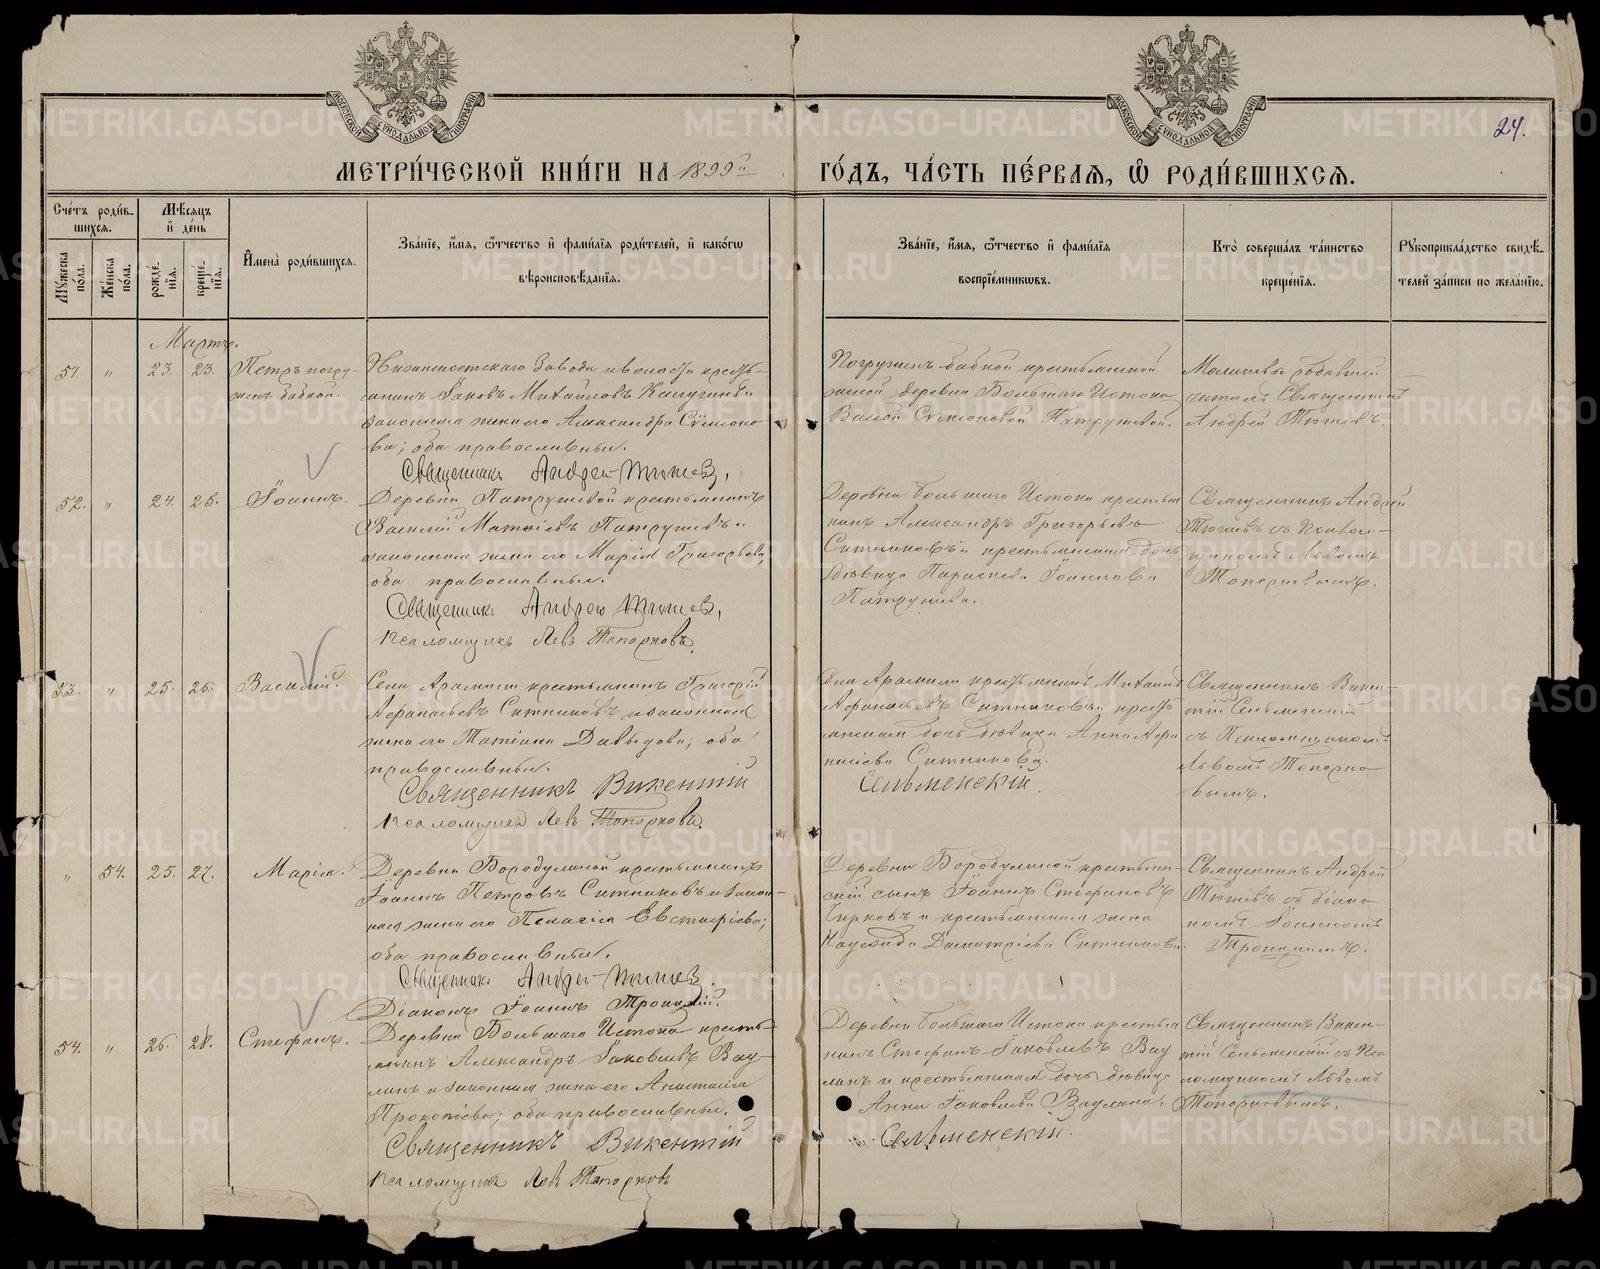 МОСКОВСКОЙ СИНОДАЛЬНОЙ ТИПОГРАФІИ
МОСКОВСКОЙ СИНОДАЛЬНОЙ ТИПОГРАФІИ
24.
МЕТРИ́ЧЕСКОЙ КНИ́ГИ НА 1899й ГО́ДЪ, ЧА́СТЬ ПЕ́РВАѦ, Ѡ҆ РОДИ́ВШИХСѦ.
Сче́тъ роди́в-
шихсѧ.
Мѣ́сѧцъ
и҆ де́нь
Мꙋ́жеска
по́ла.
Же́нска
по́ла.
рожде́-
нїѧ.
креще́-
нїѧ.
И҆мена̀ роди́вшихсѧ.
Зва́нїе, и҆́мѧ, ѻ҆́тчество и҆ фами́лїѧ роди́телей, и҆ како́гѡ
вѣроисповѣ́данїѧ.
Зва́нїе, и҆́мѧ, ѻ҆́тчество и҆ фами́лїѧ
воспрїе́мникѡвъ.
Кто̀ соверша́лъ та́инство
креще́нїѧ.
Рꙋкоприкла́дство свидѣ́-
телей за́писи по жела́нїю.
Мартъ.
51. " 23. 23. Петръ погру-
женъ бабкой.
Нижнеисетскаго Завода и волости кресть-
янинъ Іаковъ Михаиловъ и
законная жена его Александра Сѵмеоно-
ва; оба православные.
Священникъ Андрей Тюшев.
Погруженъ бабкой крестьянской
женой деревни Большаго Истока
Сѵмеоновой Патрушевой.
Молитвы
читалъ Священникъ
Андрей Тюшевъ.
52. " 24. 25. Іоаннъ.
Деревни Патрушевой крестьянинъ
Василий Матѳіевъ Патрушевъ и
законная жена его Марія Григорьева;
оба православные.
Священникъ Андрей Тюшев,
Псаломщикъ Левъ Топорковъ.
Деревни Большаго Истока крестья
нинъ Александръ Григорьевъ
Ситниковъ и крестьянская дочь
дѣвица Параскева Іоаннова
Патрушева.
Священникъ Андрей
Тюшевъ съ Псалом-
щикомъ Львомъ
Топорковымъ.
53. " 25. 26. Василій.
Села Арамили крестьянинъ Григорій
Аѳанасьевъ Ситниковъ и законная
жена его Татіана Давыдова; оба
православные.
Священникъ Викентій
Псаломщикъ Левъ Топорковъ.
Села Арамили крестьянинъ Михаилъ
Аѳанасьевъ Ситниковъ и кресть
янская дочь дѣвица Анна Аѳа
насіева Ситникова.
Сельменскій.
Священникъ Викен-
тій Сельменскій
съ Псаломщикомъ
Львомъ Топорко
вымъ.
" 54. 25. 27. Марія.
Деревни Бородулиной крестьянинъ
Іоаннъ Петровъ Ситниковъ и закон-
ная жена его Пелагія Евстафіева;
оба православные.
Священникъ Андрей Тюшев.
Діаконъ Іоаннъ Троицкій.
Деревни Бородулиной крестьян-
скій сынъ Іоаннъ Стефановъ
Чирковъ и крестьянская жена
Надежда Димитріева Ситникова.
Священникъ Андрей
Тюшевъ съ діако
номъ Іоанномъ
Троицкимъ.
54. " 26. 28. Стефанъ.
Деревни Большаго Истока кресть-
янинъ Александръ Іаковлевъ Вау-
линъ и законная жена его Анастасія
Прокопіева; оба православные.
Священникъ Викентій
Псаломщикъ Левъ Топорковъ
Деревни Большаго Истока крестья
нинъ Стефанъ Іаковлевъ Вау
линъ и крестьянская дочь дѣвица
Анна Іаковлева Ваулина.
Сельменскій.
Священникъ Викен-
тій Сельменскій съ Пса
ломщикомъ Львомъ
Топорковымъ.
METRIKI.GASO-URAL.RU